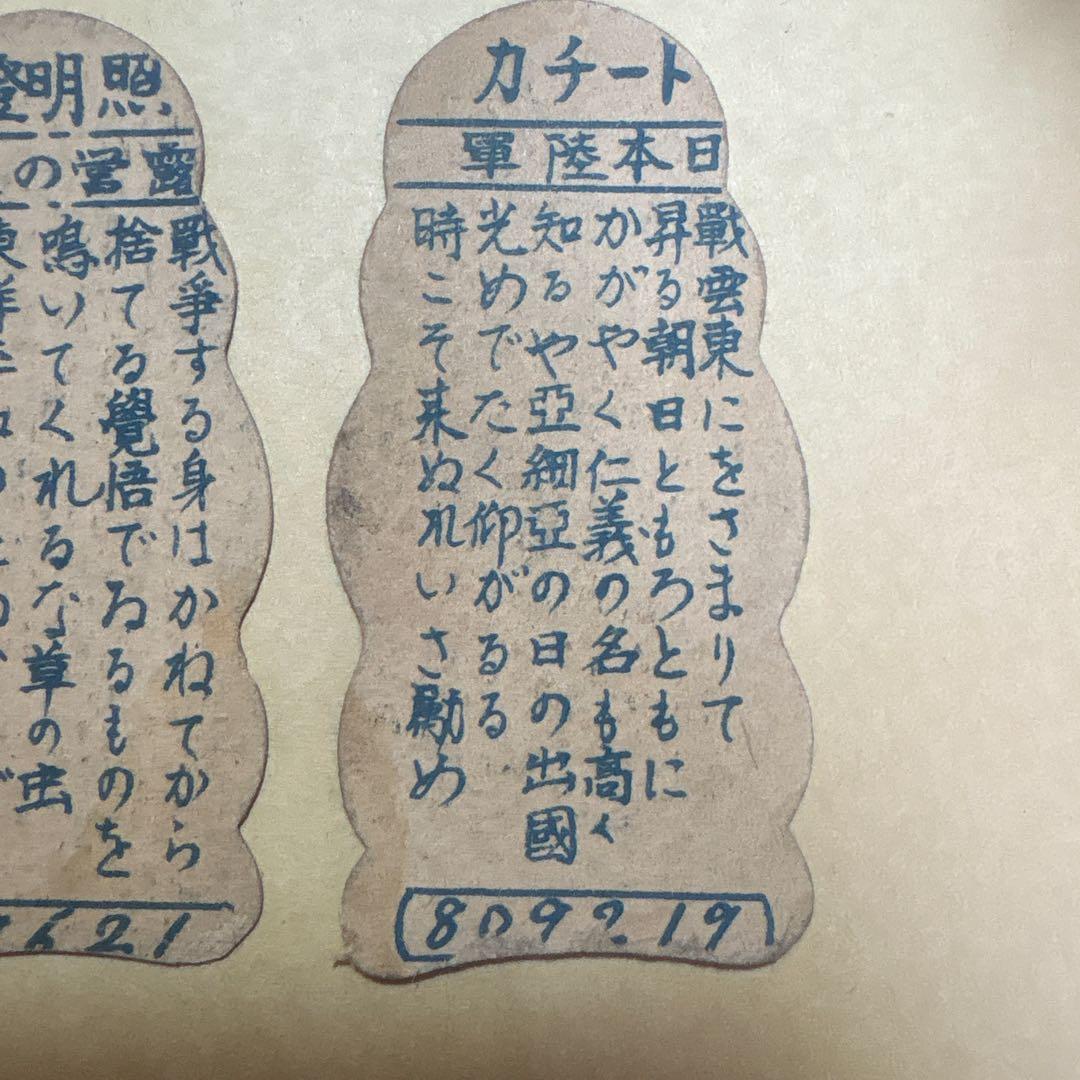 トーチカ
日本陸軍
戰雲東にをさまりて
昇る朝日ともろともに
かがやく仁義の名も高く
知るや亞細亞の日の出國
光めでたく仰がるる
時こそ来ぬれいさ勵め
照明
露営の
戰爭する身はかねてから
捨てる覺悟でゐるものを
鳴いてくれるな草の虫